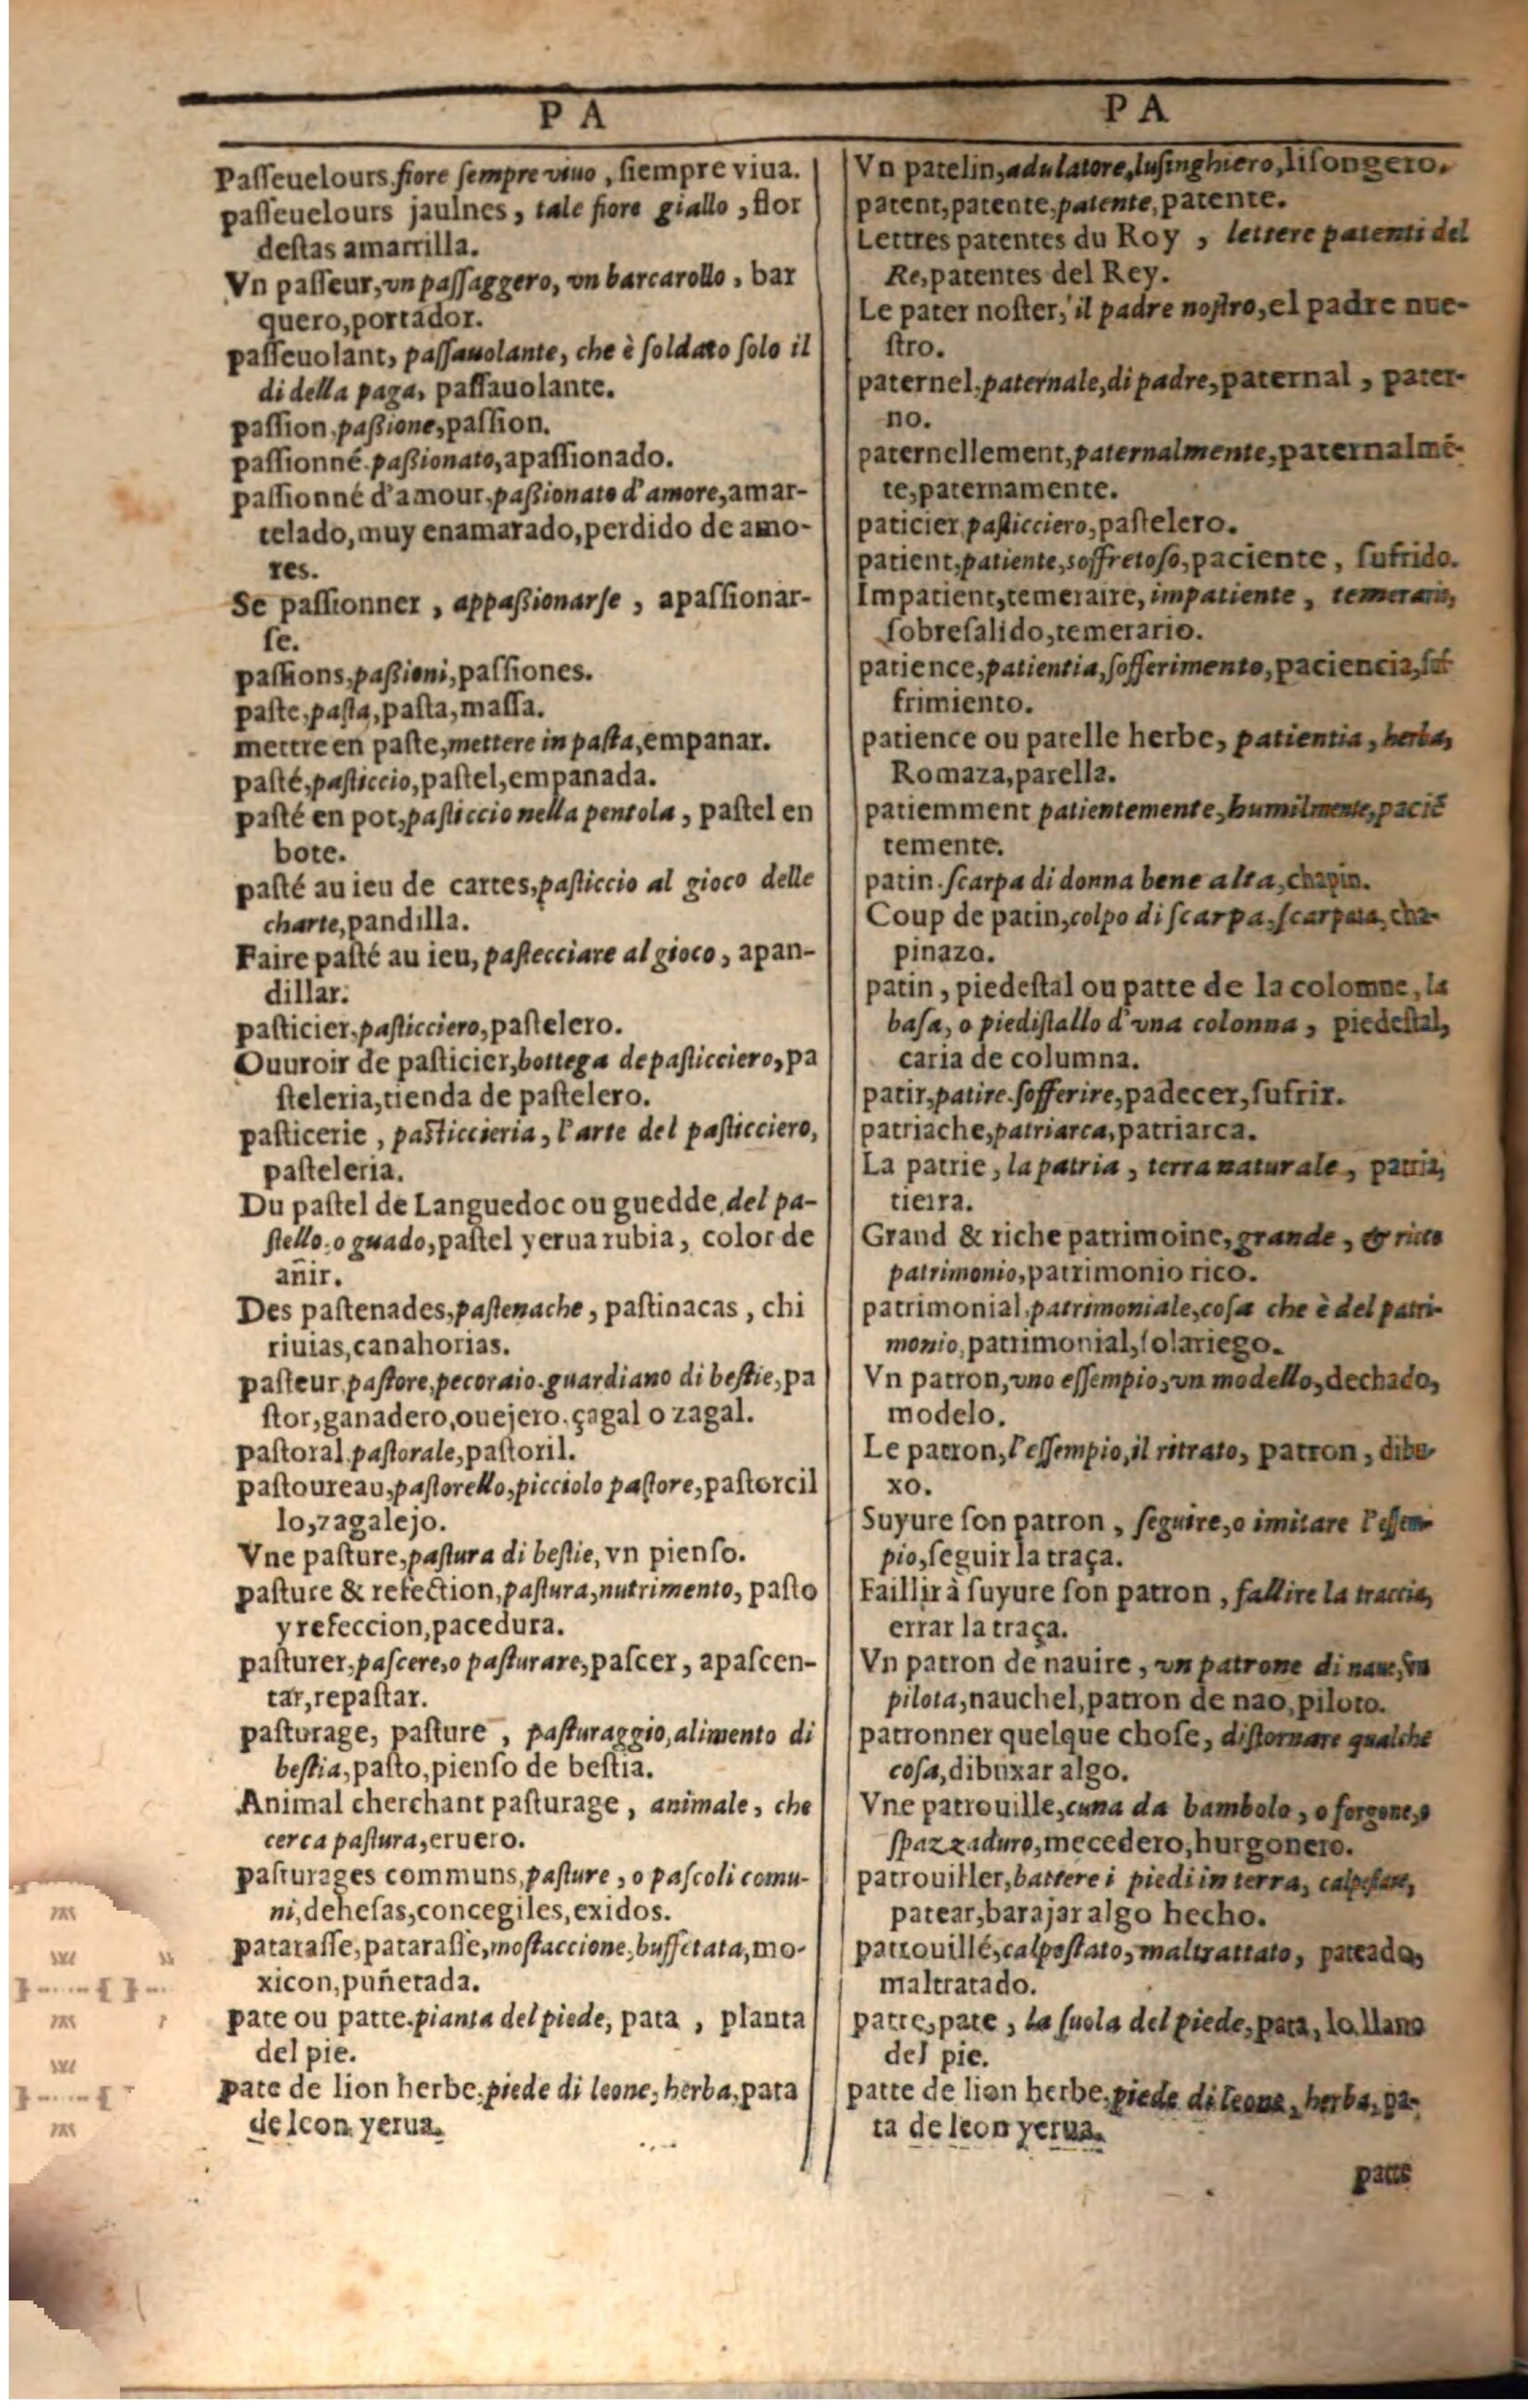 PA
Passeuelours, fiore sempre viuo, siempre viua.
passeuelours jaulnes, tale fiore giallo, flor
destas amarrilla.
Vn passeur, vn passaggero, vn barcarollo, bar
quero, portador.
passeuolant, passauolante, che è soldato solo il
di della paga, passauolante.
passion, passione, passion.
passionné. passionato, apassionado.
passionné d'amour, passionato d'amore, amar-
telado, muy enamarado, perdido de amo-
res.
Se passionner, appassionarse, apassionar-
se.
passions, passioni, passiones.
paste, pasta, pasta, massa.
mettre en paste, mettere in pasta, empanar.
pasté, pasticcio, pastel, empanada.
pasté en pot, pasticcio nella pentola, pastel en
bote.
pasté au ieu de cartes, pasticcio al gioco delle
charte, pandilla.
Faire pasté au ieu, pastecciare al gioco, apan-
dillar.
pasticier, pasticciero, pastelero.
Ouuroir de pasticier, bottega de pasticciero, pa
steleria, tienda de pastelero.
pasticerie, pasticcieria, l'arte del pasticciero,
pasteleria.
Du pastel de Languedoc ou guedde, del pa-
stello. o guado, pastel yerua rubia, color de
añir.
Des pastenades, pastenache, pastinacas, chi
riuias, canahorias.
pasteur, pastore, pecoraio. guardiano di bestie, pa
stor, ganadero, ouejero. çagal o zagal.
pastoral. pastorale, pastoril.
pastoureau, pastorello, picciolo pastore, pastorcil
lo, zagalejo.
Vne pasture, pastura di bestie, vn pienso.
pasture & refection, pastura, nutrimento, pasto
y refeccion, pacedura.
pasturer, pascere, o pasturare, pascer, apascen-
tar, repastar.
pasturage, pasture, pasturaggio, alimento di
bestia, pasto, pienso de bestia.
Animal cherchant pasturage, animale, che
cerca pastura, eruero.
pasturages communs, pasture, o pascoli comu-
ni, dehesas, concegiles, exidos.
patarasse, patarasse, mostaccione, buffetata, mo-
xicon, puñetada.
pate ou patte. pianta del piede, pata, planta
del pie.
pate de lion herbe. piede di leone, herba, pata
de leon yerua.
PA
Vn patelin, adulatore, lusinghiero, lisongero.
patent, patente, patente, patente.
Lettres patentes du Roy, lettere patenti del
Re, patentes del Rey.
Le pater noster, il padre nostro, el padre nue-
stro.
paternel. paternale, di padre, paternal, pater-
no.
paternellement, paternalmente, paternalmē-
te, paternamente.
paticier, pasticciero, pastelero.
patient, patiente, soffretoso, paciente, sufrido.
Impatient, temeraire, impatiente, temerario,
sobresalido, temerario.
patience, patientia, sofferimento, paciencia, suf
frimiento.
patience ou parelle herbe, patientia, herba,
Romaza, parella.
patiemment patientemente, humilmente, paciē
temente.
patin. scarpa di donna bene alta, chapin.
Coup de patin, colpo di scarpa. scarpata, cha-
pinazo.
patin, piedestal ou patte de la colomne, la
basa, o piedistallo d'vna colonna, piedestal,
caria de columna.
patir, patire. sofferire, padecer, sufrir.
patriache, patriarca, patriarca.
La patrie, la patria, terra naturale, patria,
tierra.
Grand & riche patrimoine, grande, & ricco
patrimonio, patrimonio rico.
patrimonial, patrimoniale, cosa che è del patri-
monio, patrimonial, solariego.
Vn patron, vno essempio, vn modello, dechado,
modelo.
Le patron, l'essempio, il ritrato, patron, dibu-
xo.
Suyure son patron, seguire, o imitare l'essem-
pio, seguir la traça.
Faillir à suyure son patron, fallire la traccia,
errar la traça.
Vn patron de nauire, vn patrone di naue, vn
pilota, nauchel, patron de nao, piloto.
patronner quelque chose, distornare qualche
cosa, dibuxar algo.
Vne patrouille, cuna da bambolo, o forgone, o
spazzaduro, mecedero, hurgonero.
patrouiller, battere i piedi in terra, calpestare,
patear, barajar algo hecho.
patrouillé, calpestato, maltrattato, pateado,
maltratado.
patte, pate, la suola del piede, pata, lo llano
del pie.
patte de lion herbe, piede di leone, herba, pa-
ta de leon yerua.
patte